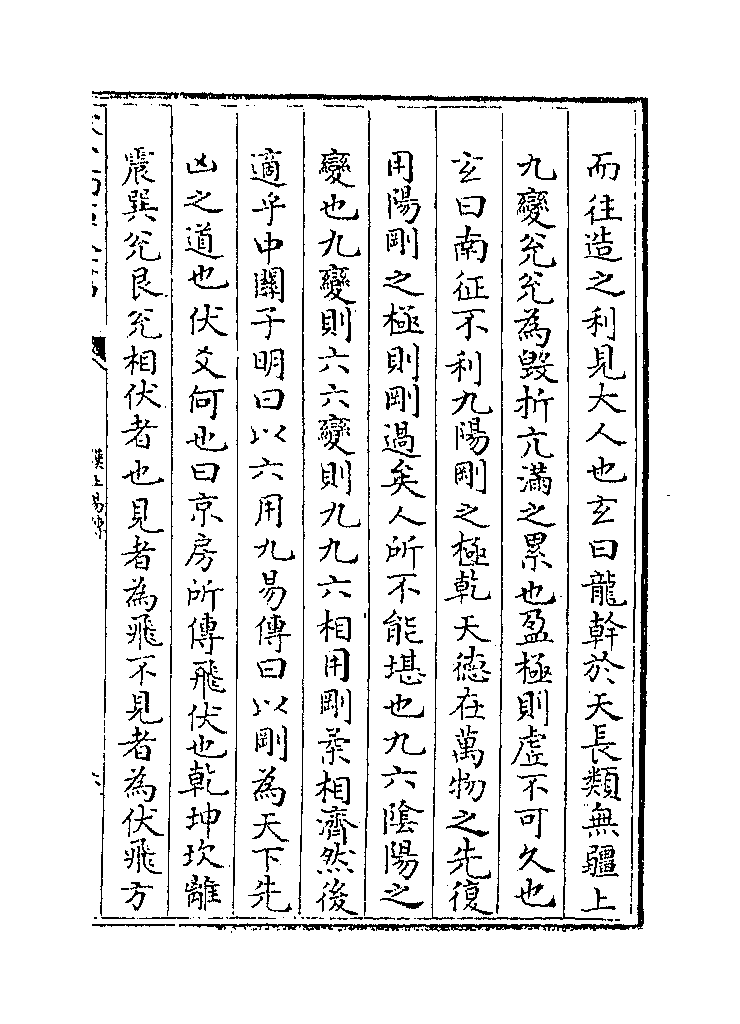 而往造之利見大人也玄曰龍幹於天長類無疆上
九變兊兊為毀折亢滿之累也盈極則虛不可久也
玄曰南征不利九陽剛之極乾天德在萬物之先復
用陽剛之極則剛過矣人所不能堪也九六隂陽之
變也九變則六六變則九九六相用剛柔相濟然後
適乎中關子明曰以六用九易傳曰以剛為天下先
凶之道也伏爻何也曰京房所傳飛伏也乾坤坎離
震巽兊艮兊相伏者也見者為飛不見者為伏飛方
漢上易傳